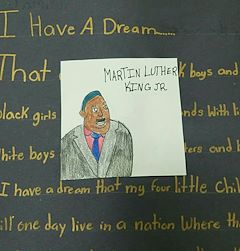 I Have A Dream......
That
MARTIN LUTHER
KING JR.
k boys and
black girls
ands With li
White boys
ers and b
I have a dream that my four little Chil
will one day live in a nation Where th